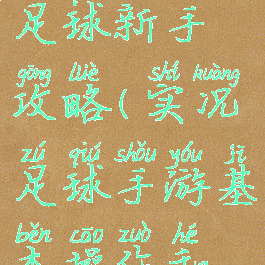 足球新手
gōng lüè shí kuàng
攻略(实况
zú qiú shǒu yóu jī
足球手游基
běn cāo zuò hé
本操作和